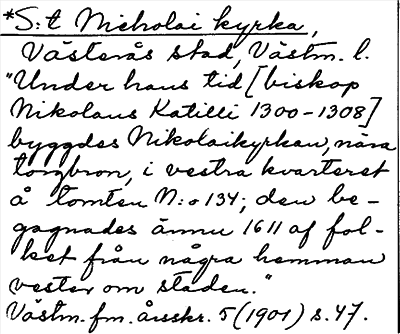 *S:t Nicholai kyrka,
Västerås stad, Västm. l.
"Under hans tid [biskop
Nikolaus Katilli 1300-1308]
byggdes Nikolaikyrkan, nära
torgbron, i vestra kvarteret
å tomten N:o 134; den be-
gagnades ännu 1611 af fol-
ket från några hemman
vester om staden."
Västm. fm. årsskr. 5 (1901) s. 47.